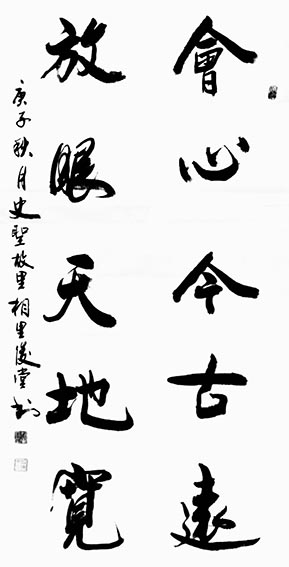 會心今古遠
放眼天地寬
庚子秋月史聖故里相里俊堂書